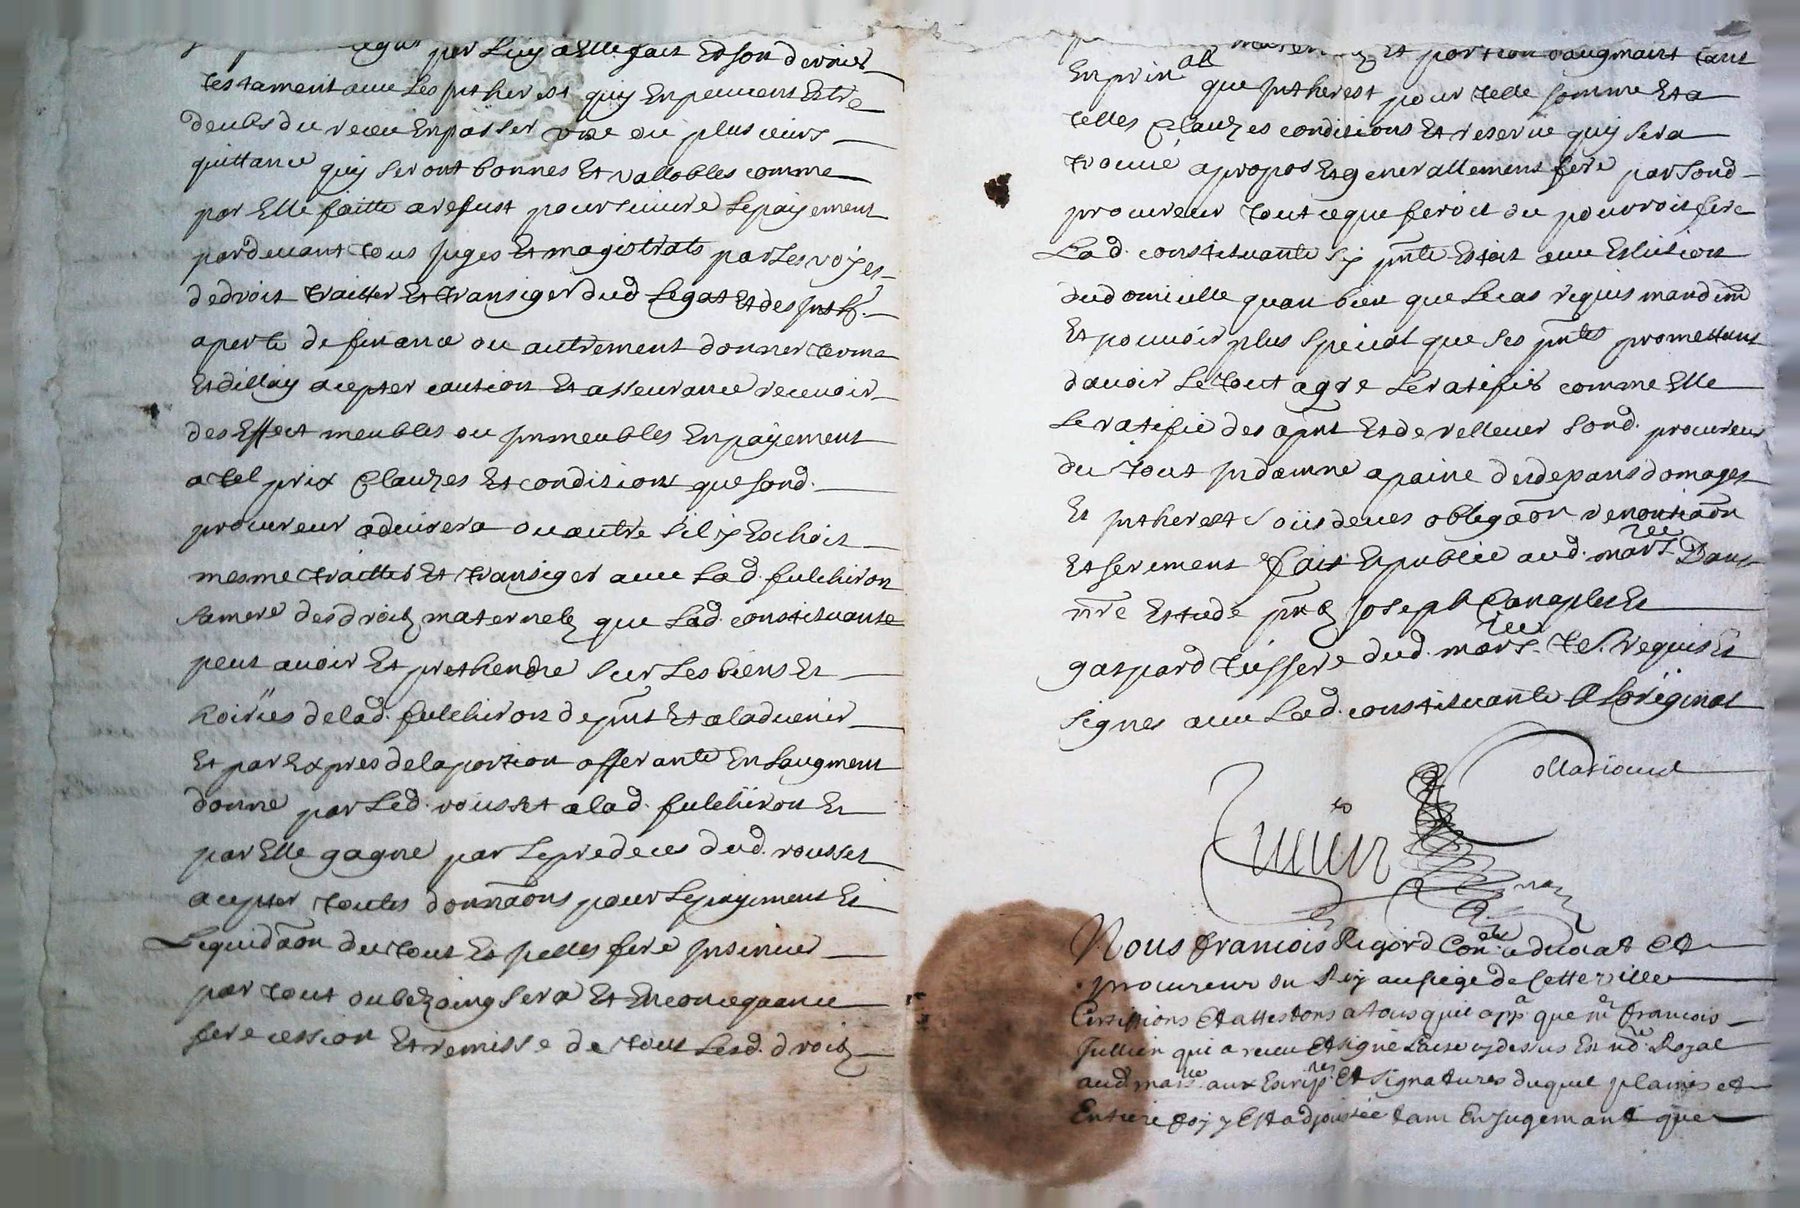 par luy a elle fait et son dernier
testament avec les intherest quy en peuvent estre
deubs du receu en passer une ou plusieurs
quittance quy seront bonnes et vallobles comme
par elle faitte a refust poursuivre le payement
pardevant tous juges et magistrats par les voyes
de droit traitter et transiger dud. legat et des inth.
a perte de finance ou autrement donner terme
et dillay acepter caution et asseurance recevoir
des effect meubles ou immeubles en payement
a tel prix clauzes et conditions que sond.
procureur advisera ou autre sil y eschoit
mesme traitter et transiger avec lad. fulchiron
sa mere des droitz maternelz que lad. constituante
peut avoir et prethendre sur les biens et
hoiries de lad. fulchiron de pnt et a ladvenir
et par expres de la portion afferante en laugment
donné par led. rousset a lad. fulchiron et
par elle gagné par le predeces dud. rousset
acepter toutes donnaons pour le payement et
liquidaon du tout et icelles fere insinuer
par tout ou bezoing sera et en conceqance
fere cession et remisse de tout lesd. droitz
et portion daugmant tant
en prin al que intherest pour telle somme et a
telles clauzes conditions et reserve quy sera
trouvé a propos et generallement fere par sond.
procureur tout ce que feroit ou pourroit fere
lad. constituante sy pnte estoit avec eslition
du domicille quan bien que le cas requis mandemt
et pouvoir plus special que ses pntes promettant
davoir le tout agre le ratifier comme elle
le ratifie des apnt et de rellever sond. procureur
du tout indamne a paine des depans domages
et intherest sous deues obligaon renontiaon
et serement fait et publié aud. mars lle dans
mre estude pntz joseph Canaples et
gaspard tissere dud. mars lle tes. requis et
signes avec lad. constituante a loriginal
ollatione
Nous francois Rigord Con er advocat et
procureur du Roy au siege de cette ville
Certiffions et attestons a tous quil appa. que me francois
Jullien qui a receu et signé lacte cy desus est nre Royal
aud. mars lle aux escrip res et signatures duquel plaine et
entiere foy y est adjoustée tant en jugemant que